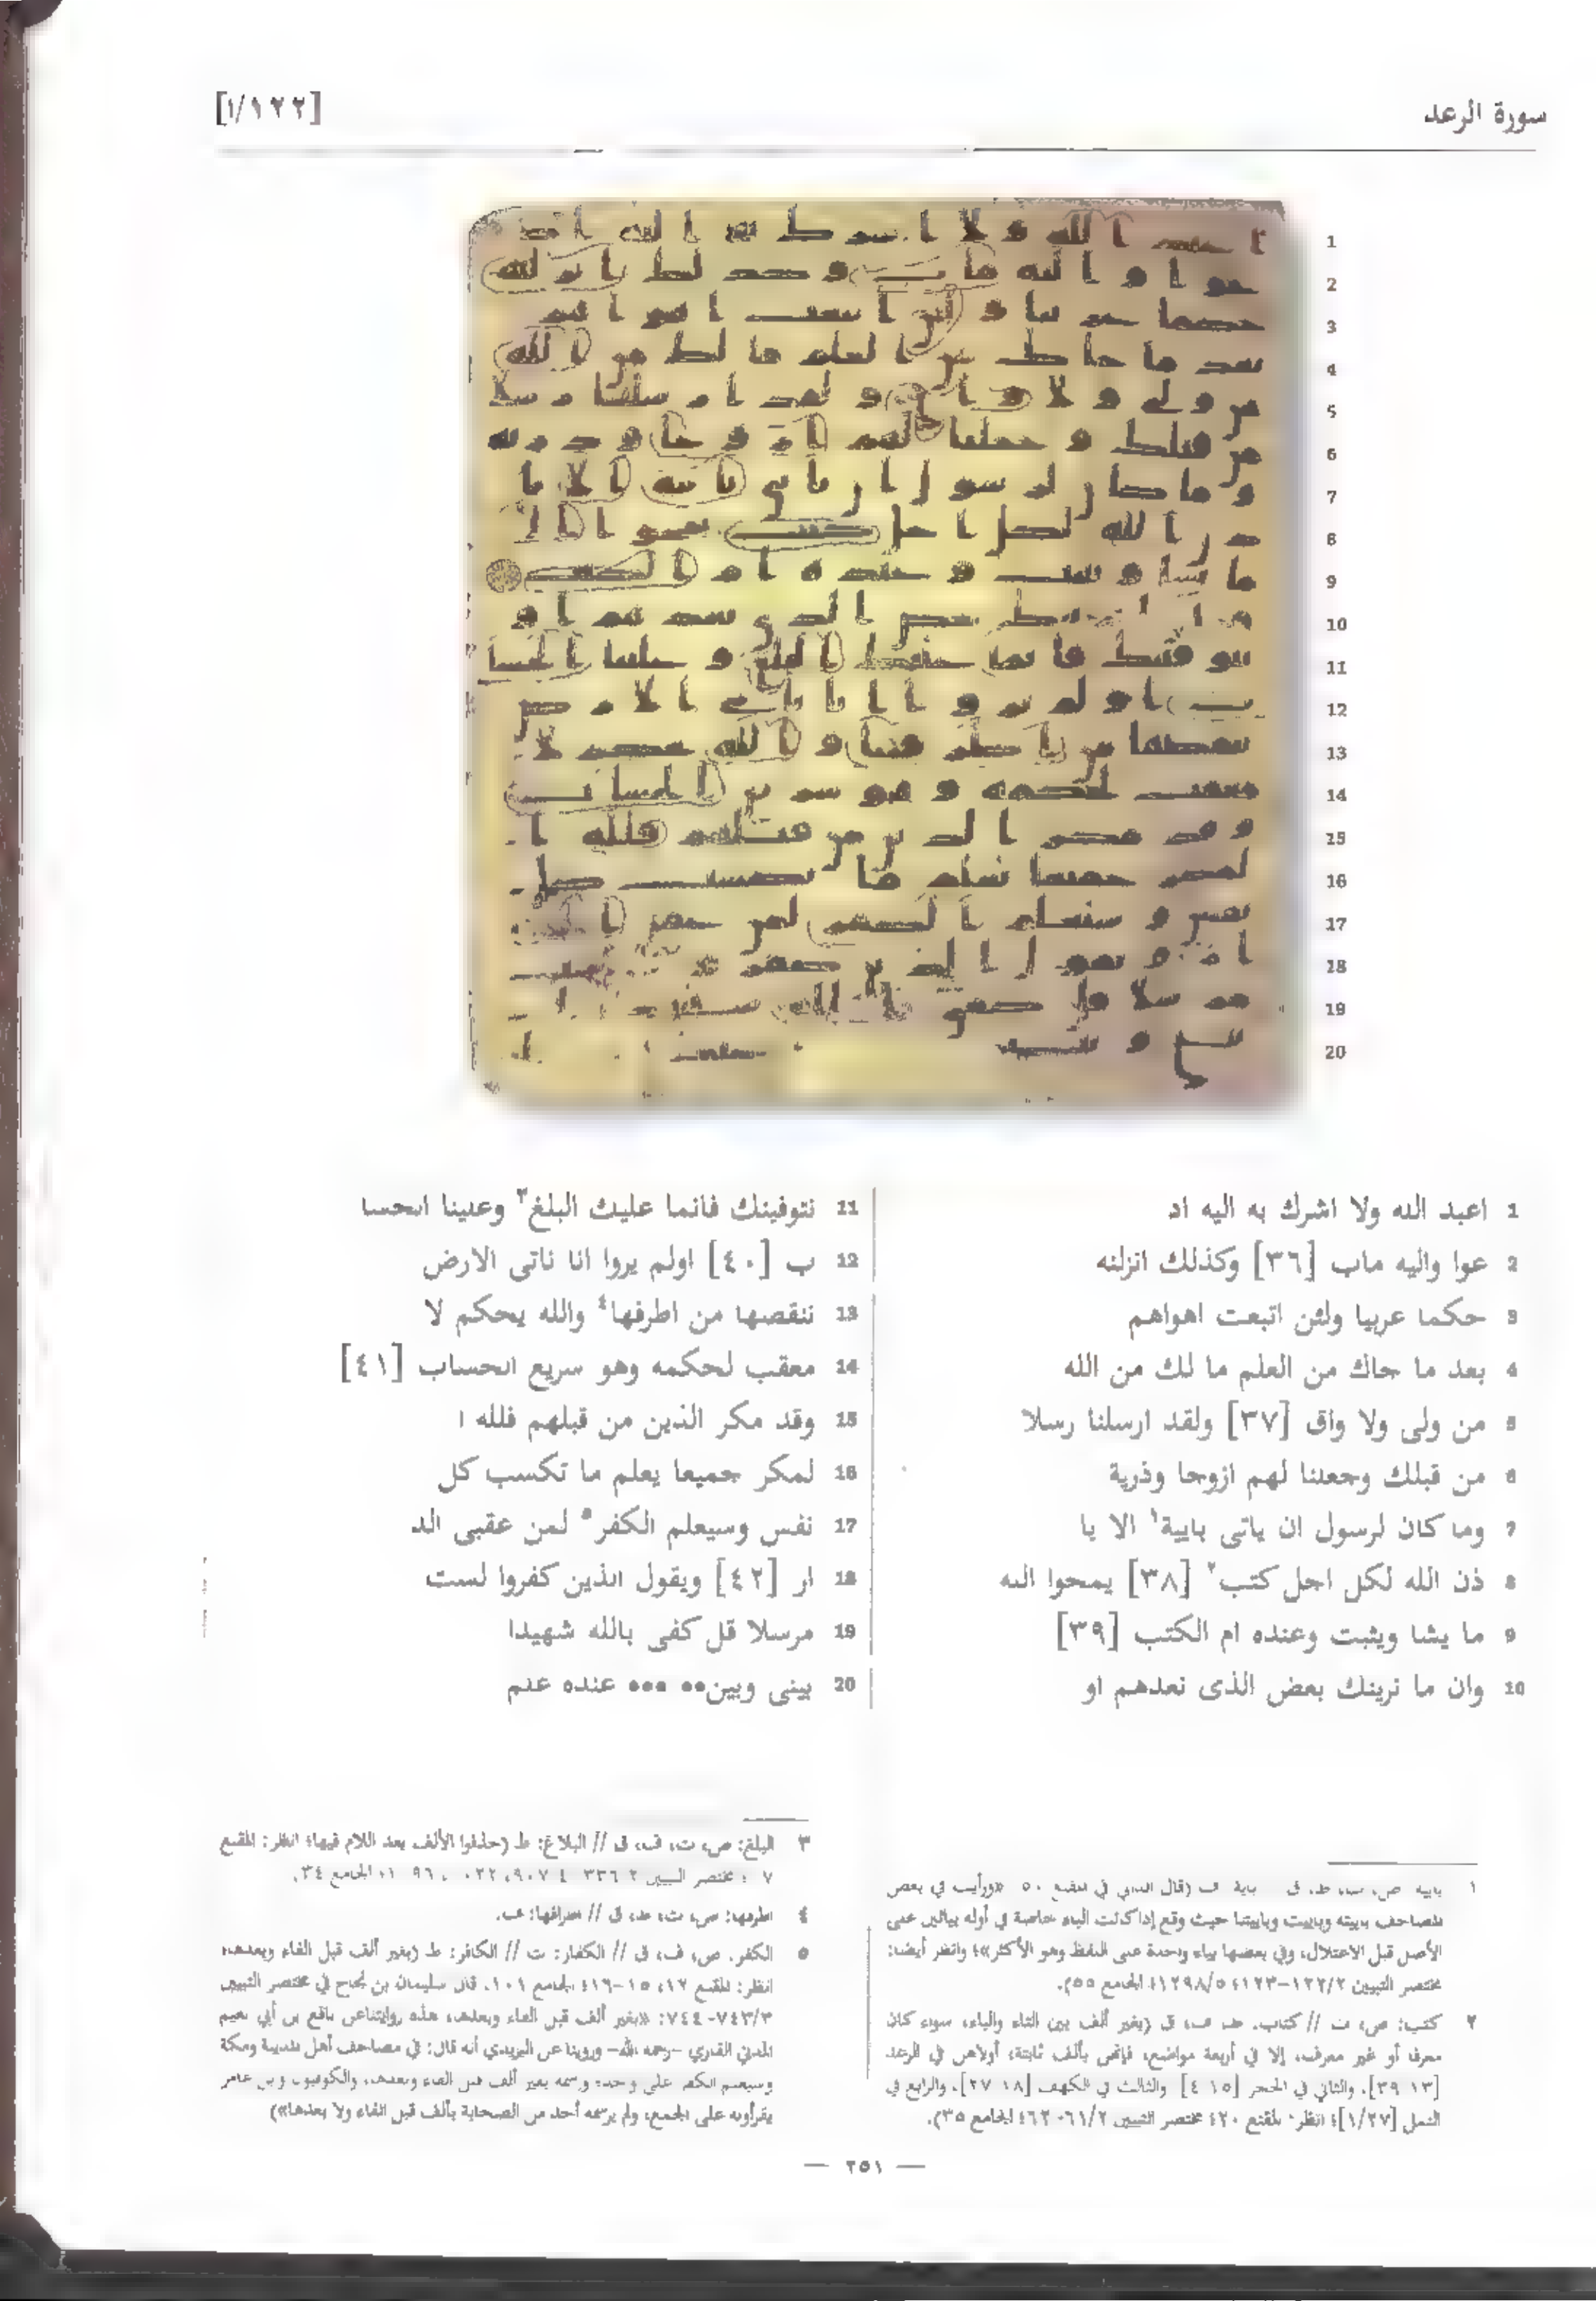 سورة الرعد
[١/١٢٢]
1 اعبد الله ولا اشرك به اليه اد
2 عوا واليه ماب [٣٦] وكذلك انزلنه
3 حكما عربيا ولئن اتبعت اهواهم
4 بعد ما جاك من العلم ما لك من الله
5 من ولى ولا واق [٣٧] ولقد ارسلنا رسلا
6 من قبلك وجعلنا لهم ازوجا وذرية
7 وما كان لرسول ان ياتى بايية١ الا با
8 ذن الله لكل اجل كتب٢ [٣٨] يمحوا الله
9 ما يشا ويثبت وعنده ام الكتب [٣٩]
10 وان ما نرينك بعض الذى نعدهم او
11 نتوفينك فانما عليك البلغ٣ وعلينا الحسا
12 ب [٤٠] اولم يروا انا ناتى الارض
13 ننقصها من اطرفها٤ والله يحكم لا
14 معقب لحكمه وهو سريع الحساب [٤١]
15 وقد مكر الذين من قبلهم فلله ا
16 لمكر جميعا يعلم ما تكسب كل
17 نفس وسيعلم الكفر٥ لمن عقبى الد
18 ار [٤٢] ويقول الذين كفروا لست
19 مرسلا قل كفى بالله شهيدا
20 بينى وبين•• ••• عنده علم
١ بايية ص، ط، ق باية ف (قال الداني في المقنع ٥٠ «ورأيت في بعض
المصاحف باييته وباييت وباييتنا حيث وقع إذا كانت الباء خاصة في أوله بيائين على
الأصل قبل الاعتلال، وفي بعضها بياء واحدة على اللفظ وهو الأكثر»؛ وانظر أيضا:
مختصر التبيين ١٢٢/٢-١٢٣؛ ١٢٩٨/٥؛ الجامع ٥٥).
٢ كتب: ص، ت // كتاب: ط، ف، ق (بغير ألف بين التاء والباء، سواء كان
معرفا أو غير معرف، إلا في أربعة مواضع، فإنهن بألف ثابتة؛ أولاهن في الرعد
[١٣ ٣٩]. والثاني في الحجر [١٥ ٤] والثالث في الكهف [١٨ ٢٧]. والرابع في
النمل [١/٢٧]؛ انظر: المقنع ٢٠؛ مختصر التبيين ٦١/٢-٦٢؛ الجامع ٣٥).
٣ البلغ: ص، ت، ف، ق // البلاغ: ط (حذفوا الألف بعد اللام فيها؛ انظر: المقنع
مختصر التبيين الجامع ٣٤.
٤ اطرفها: ص، ت، ط، ق // اطرافها: ف.
٥ الكفر: ص، ف، ق // الكفار: ت // الكافر: ط (بغير ألف قبل الفاء وبعدها؛
انظر: المقنع ١٢، ١٥-١٦؛ الجامع ١٠١. قال سليمان بن نجاح في مختصر التبيين
٧٤٣/٣-٧٤٤: «بغير ألف قبل الفاء وبعدها، هذه روايتنا عن نافع بن أبي نعيم
المدني القاري -رحمه الله- وروينا عن اليزيدي أنه قال: في مصاحف أهل المدينة ومكة
وسيعلم الكفر على واحد؛ ورسمه بغير ألف قبل الفاء وبعدها، والكوفيون وبن عامر
يقرأونه على الجمع، ولم يرسمه أحد من الصحابة بألف قبل الفاء ولا بعدها»)
— ٢٥١ —